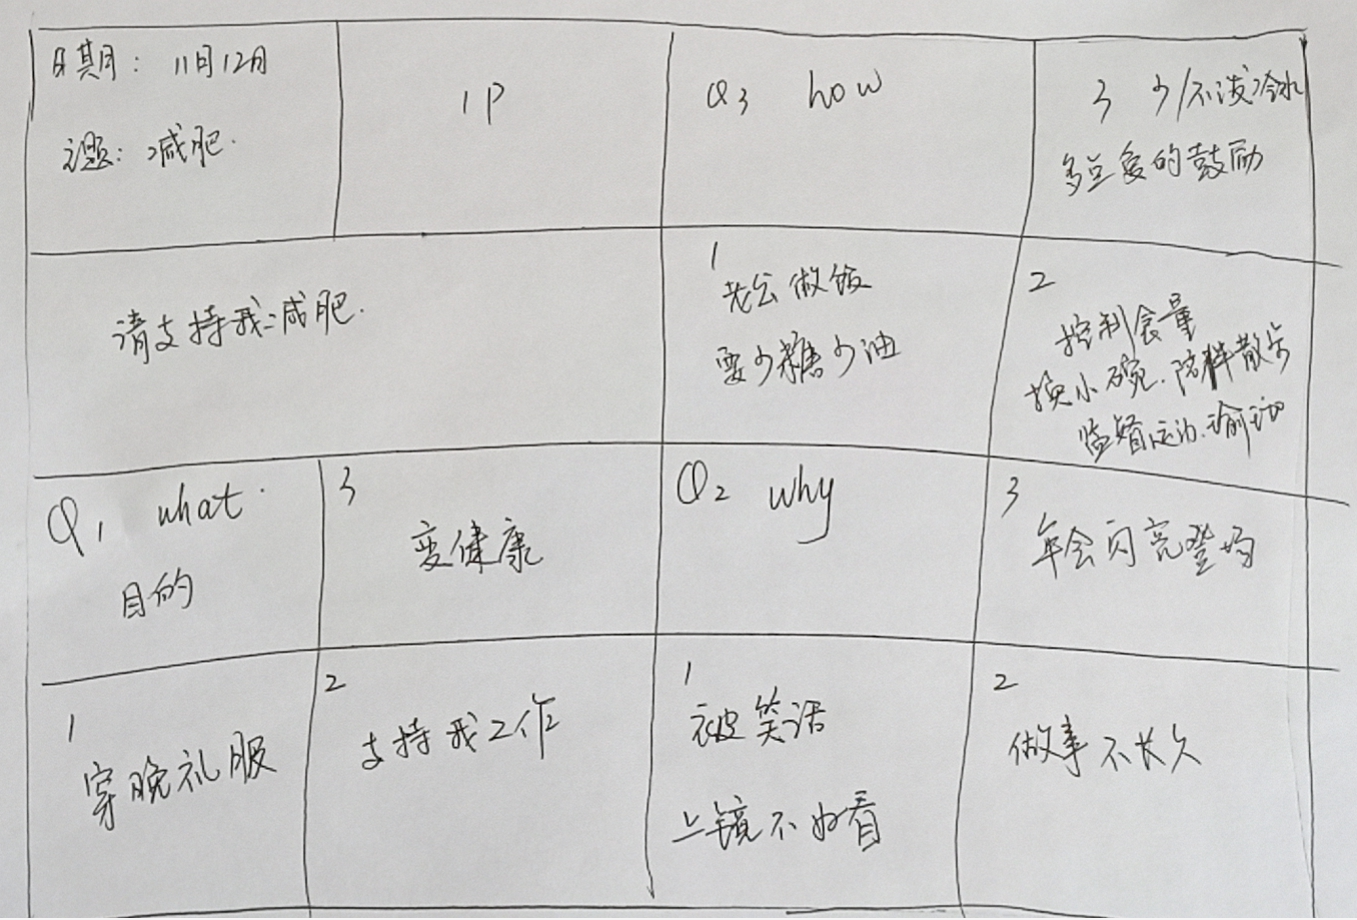 日期: 11月12日
主题: 减肥.
1P
Q3 how
3 少/不泼冷水
多正象的鼓励
请支持我减肥.
1
老公做饭
要少糖少油
2
控制食量
换小碗.陪伴散步
监督运动.瑜珈
Q1 what.
目的
3
变健康
Q2 why
3
年会闪亮登场
1
穿晚礼服
2
支持我工作
1
被笑话
上镜不好看
2
做事不长久